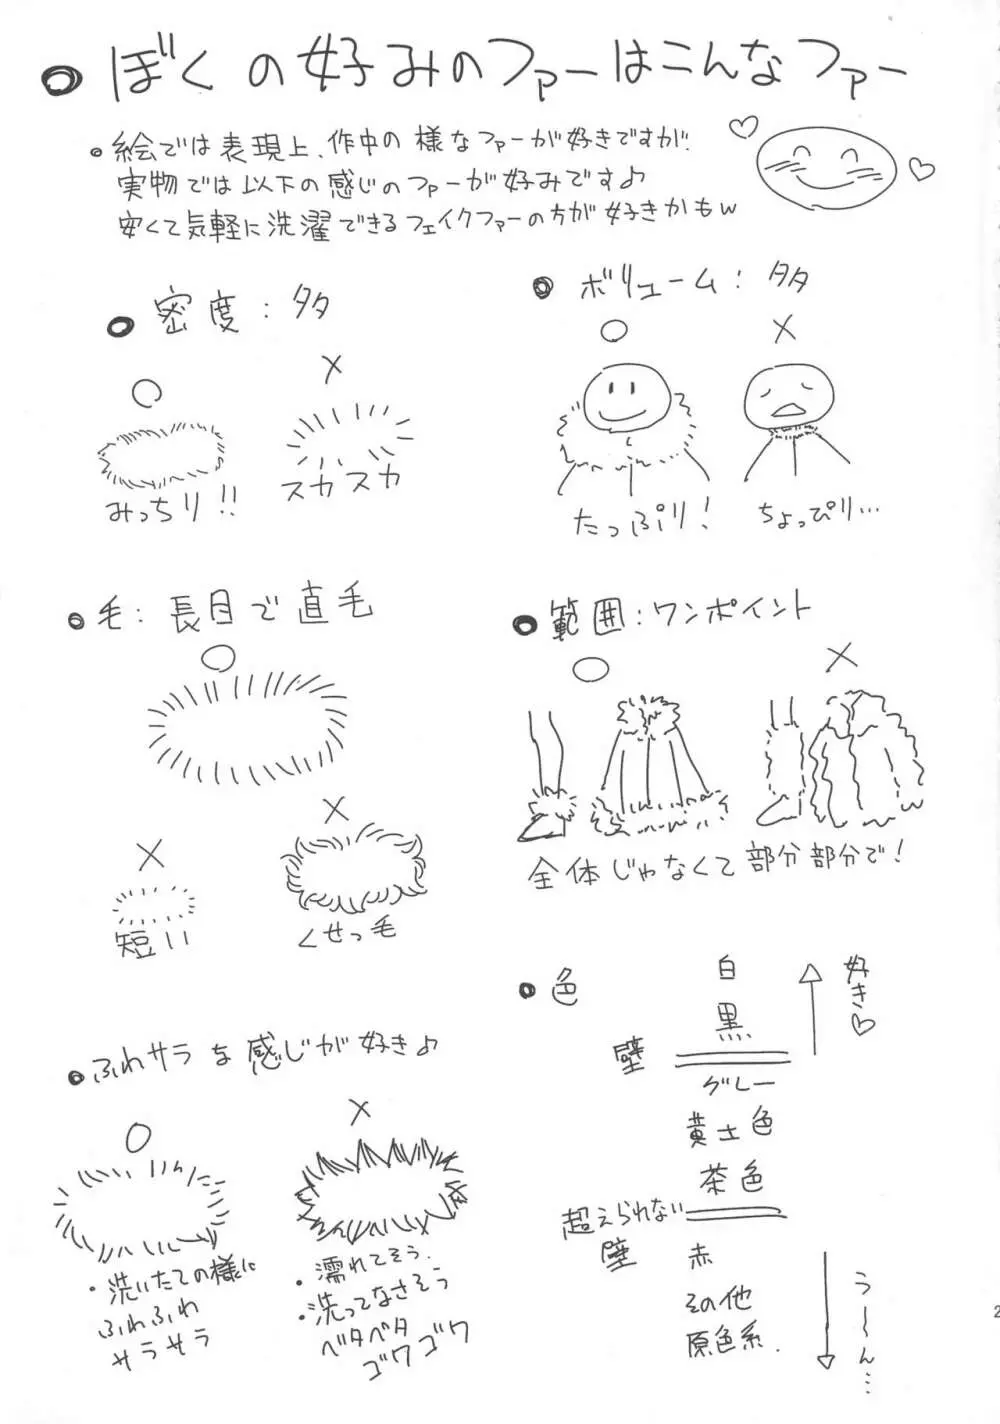 ぼくの好みのファーはこんなファー
絵では表現上、作中の様なファーが好きですが
実物では以下の感じのファーが好みです♪
安くて気軽に洗濯できるフェイクファーの方が好きかもw
密度:多
○
×
みっちり!!
スカスカ
ボリューム:多
○
×
たっぷり!
ちょっぴり…
毛:長目で直毛
○
×
短い
×
くせっ毛
範囲:ワンポイント
○
×
全体じゃなくて部分部分で!
ふわサラな感じが好き♪
○
・洗いたての様に
ふわふわ
サラサラ
×
・濡れてそう.
・洗ってなさそう
ベタベタ
ゴワゴワ
色
白
黒
好き♡
壁
グレー
黄土色
茶色
超えられない
壁
赤
その他
原色系.
う〜〜ん…
2